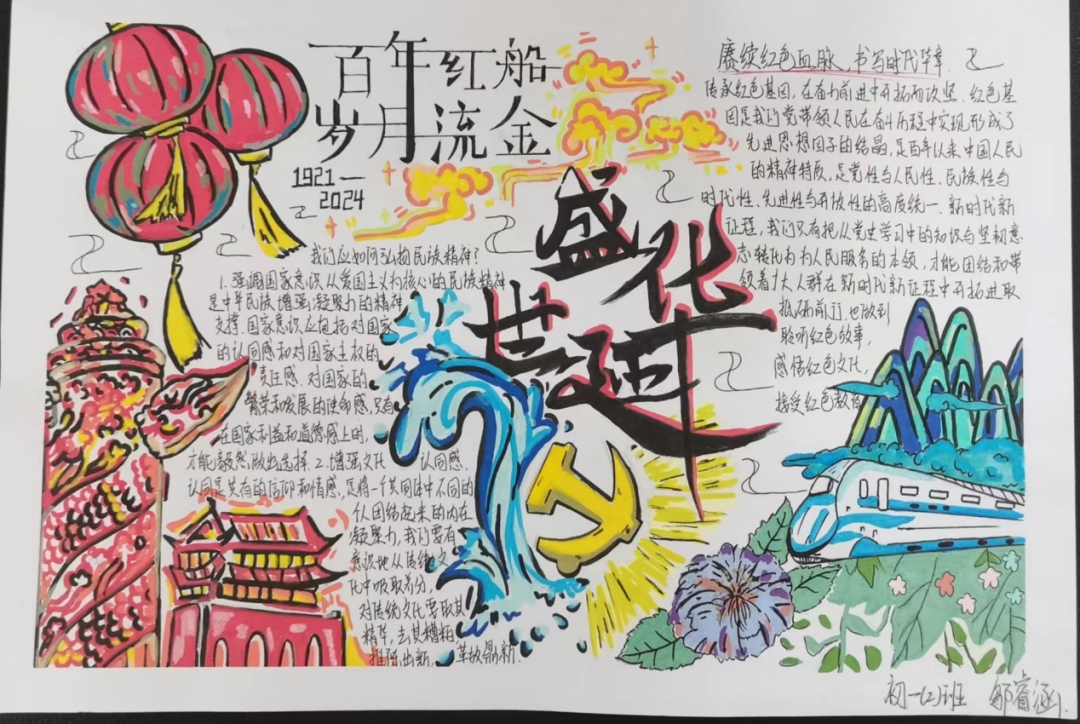 百年红船
岁月流金
1921—
2024
盛世华廷
赓续红色血脉,书写时代华章
传承红色基因,在奋力前进中开拓而攻坚.红色基
因是我们党带领人民在奋斗历程中实现形成了
先进思想因子的结晶,是百年以来中国人民
的精神特质,是党性与人民性、民族性与
时代性、先进性与开放性的高度统一.新时代新
征程,我们只有把从党史学习中的知识与坚韧意
志转化为为人民服务的本领,才能团结和带
领着广大人群在新时代新征程中开拓进取
砥砺前行,也做到
聆听红色故事,
感悟红色文化,
接受红色教育
我们应如何弘扬民族精神?
1.强调国家意识从爱国主义为核心的民族精神
是中华民族增强凝聚力的精神
支撑.国家意识应包括对国家
的认同感和对国家主权的
责任感.对国家的
繁荣和发展的使命感,只有
在国家利益和道德感上的,
才能毅然做出选择.2.增强文化认同感.
认同是共有的信仰和情感,是将一个共同体中不同的
个人团结起来的内在
凝聚力,我们要有
意识地从传统文
化中吸取养分,
对传统文化要取其
精华、去其糟粕
推陈出新、革故鼎新.
初一(2)班 邹睿涵